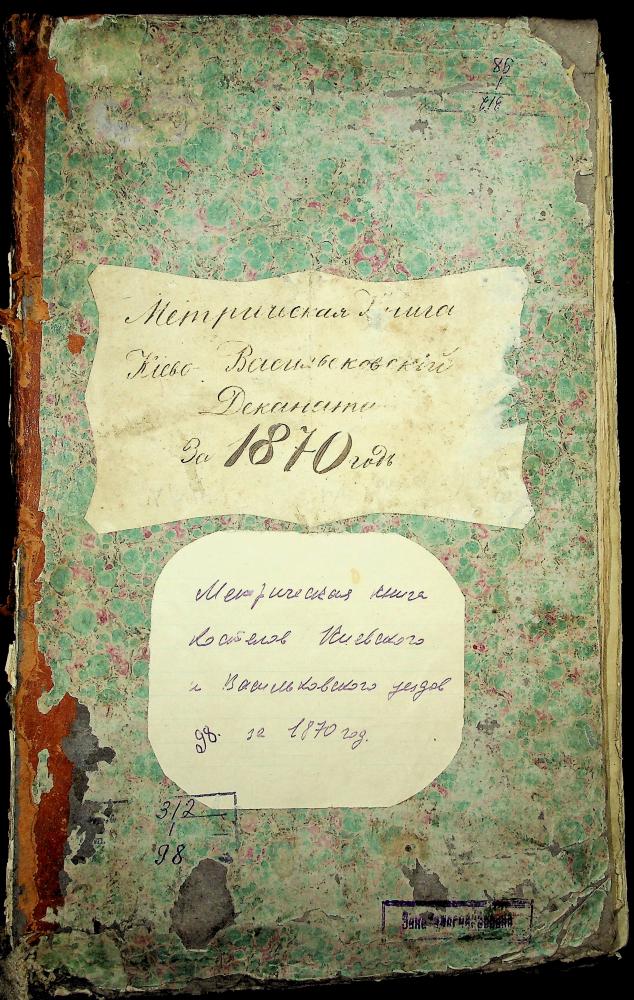 98
1
312
Метрическая Книга
Кіево-Васильковскій
Деканата
За 1870 годъ
Метрическая книга
костелов Киевского
и Васильковского уездов
98. за 1870 год.
312
1
98